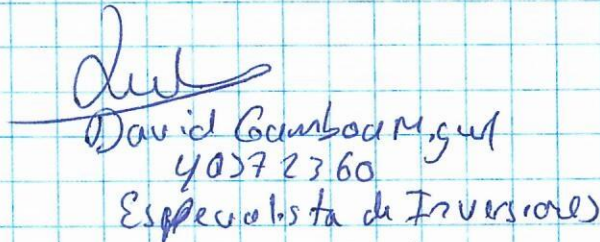 David Gamboa Miguel
40372360
Esppecialista de Inversiones